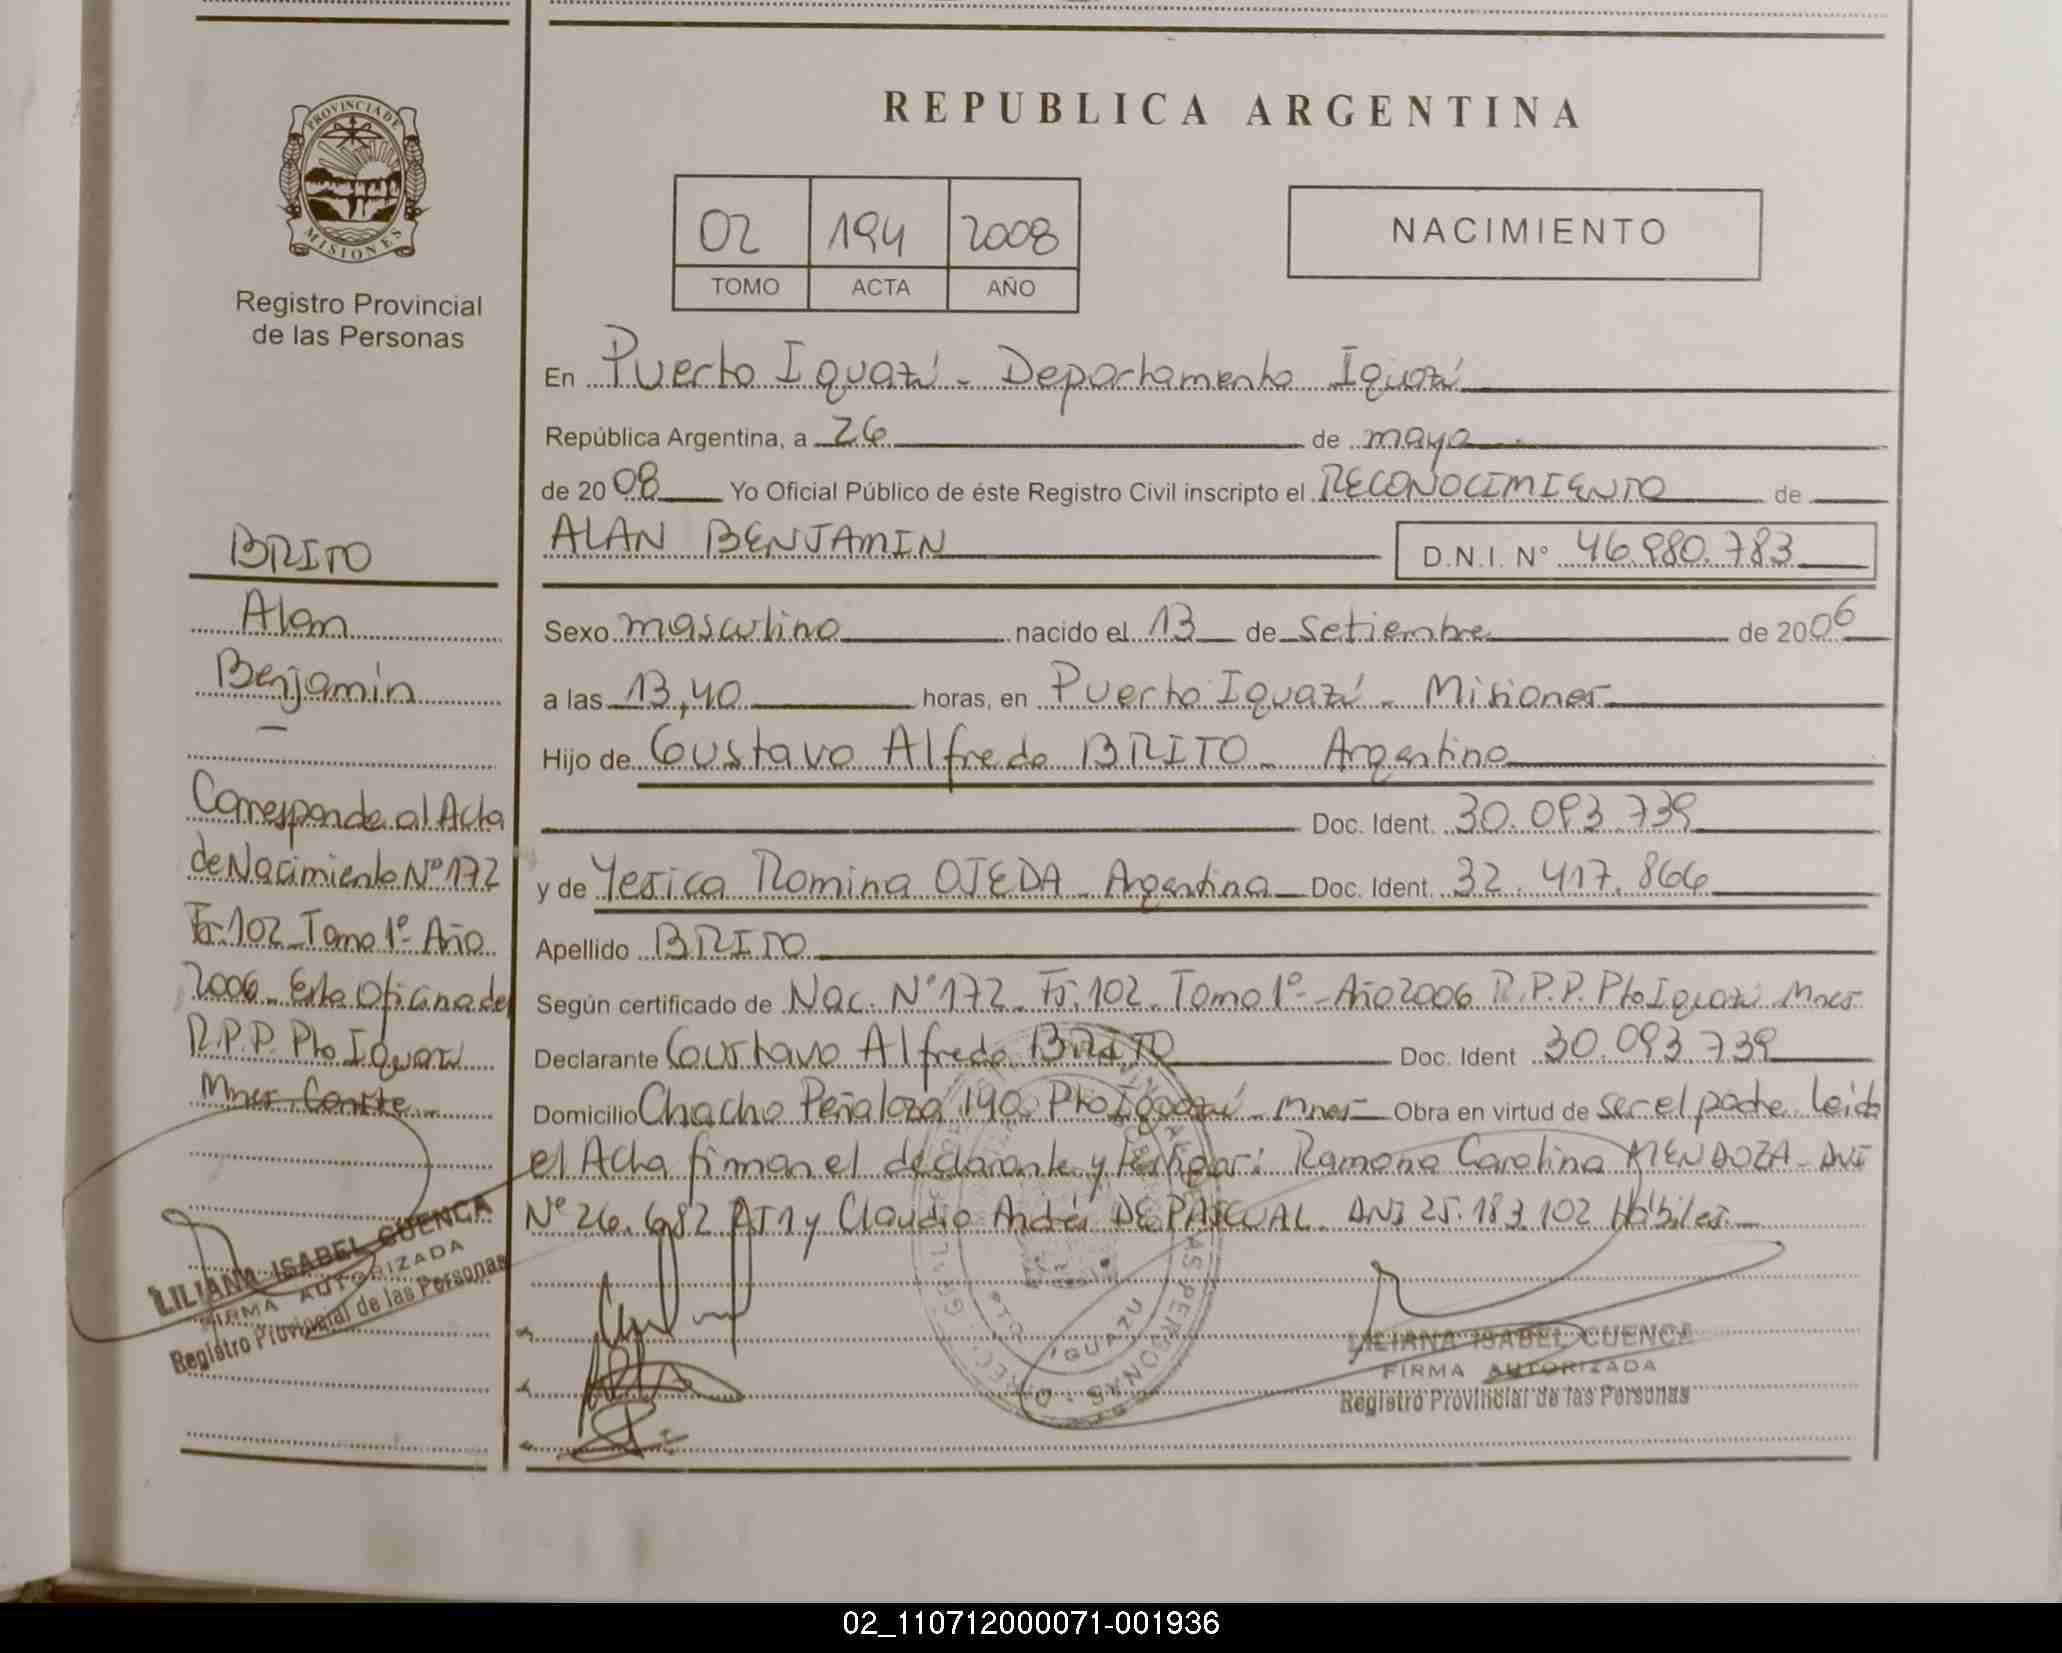 REPUBLICA ARGENTINA
PROVINCIA DE
MISIONES
Registro Provincial
de las Personas
02 194 2008
TOMO ACTA AÑO
NACIMIENTO
En Puerto Iguazú - Departamento Iguazú
República Argentina, a 26 de mayo
de 2008 Yo Oficial Público de éste Registro Civil inscripto el RECONOCIMIENTO de
ALAN BENJAMIN D.N.I. Nº 46.980.783
Sexo masculino nacido el 13 de Setiembre de 2006
a las 13,40 horas, en Puerto Iguazú - Misiones
Hijo de Gustavo Alfredo BRITO - Argentino
Doc. Ident. 30.093.739
y de Yesica Romina OJEDA - Argentina Doc. Ident. 32.417.866
Apellido BRITO
Según certificado de Nac. Nº 172 - Fº. 102 - Tomo 1º - Año 2006 R.P.P. Pto Iguazú Mnes
Declarante Gustavo Alfredo BRITO Doc. Ident 30.093.739
Domicilio Chacho Peñaloza 190 Pto Iguazú - Mnes Obra en virtud de ser el padre Leida
el Acta firman el declarante y testigos: Ramona Carolina MENDOZA - DNI
Nº 26.682. y Claudio Andrés DE PASCUAL - DNI 25.183.102 Hábiles
BRITO
Alan
Benjamín
Corresponde al Acta
de Nacimiento Nº 172
Fº. 102 - Tomo 1º - Año
2006 - Esta Oficina del
R.P.P. Pto Iguazú
Mnes. Conste
LILIANA ISABEL CUENCA
FIRMA AUTORIZADA
Registro Provincial de las Personas
LILIANA ISABEL CUENCA
FIRMA AUTORIZADA
Registro Provincial de las Personas
AS PERSONAS
PTO IGUAZU
02_110712000071-001936